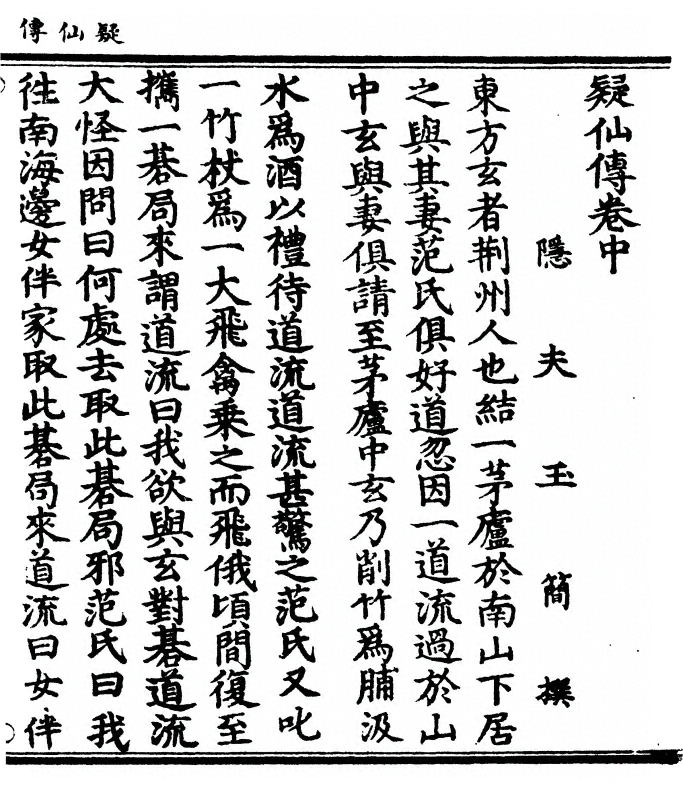 疑仙傳
疑仙傳卷中
隱夫玉簡撰
東方玄者荆州人也結一茅廬於南山下居
之與其妻范氏俱好道忽因一道流過於山
中玄與妻俱請至茅廬中玄乃削竹爲脯汲
水爲酒以禮待道流道流甚驚之范氏又叱
一竹杖爲一大飛禽乗之而飛俄頃間復至
攜一碁局來謂道流曰我欲與玄對碁道流
大怪因問曰何處去取此碁局邪范氏曰我
往南海邊女伴家取此碁局來道流曰女伴